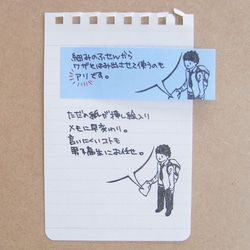 細みのふせんから
ワザとはみ出させて使うのも
アリです。
ただの紙が挿し絵入り
メモに早変わり。
言いにくいコトも
男子高生にお任せ。